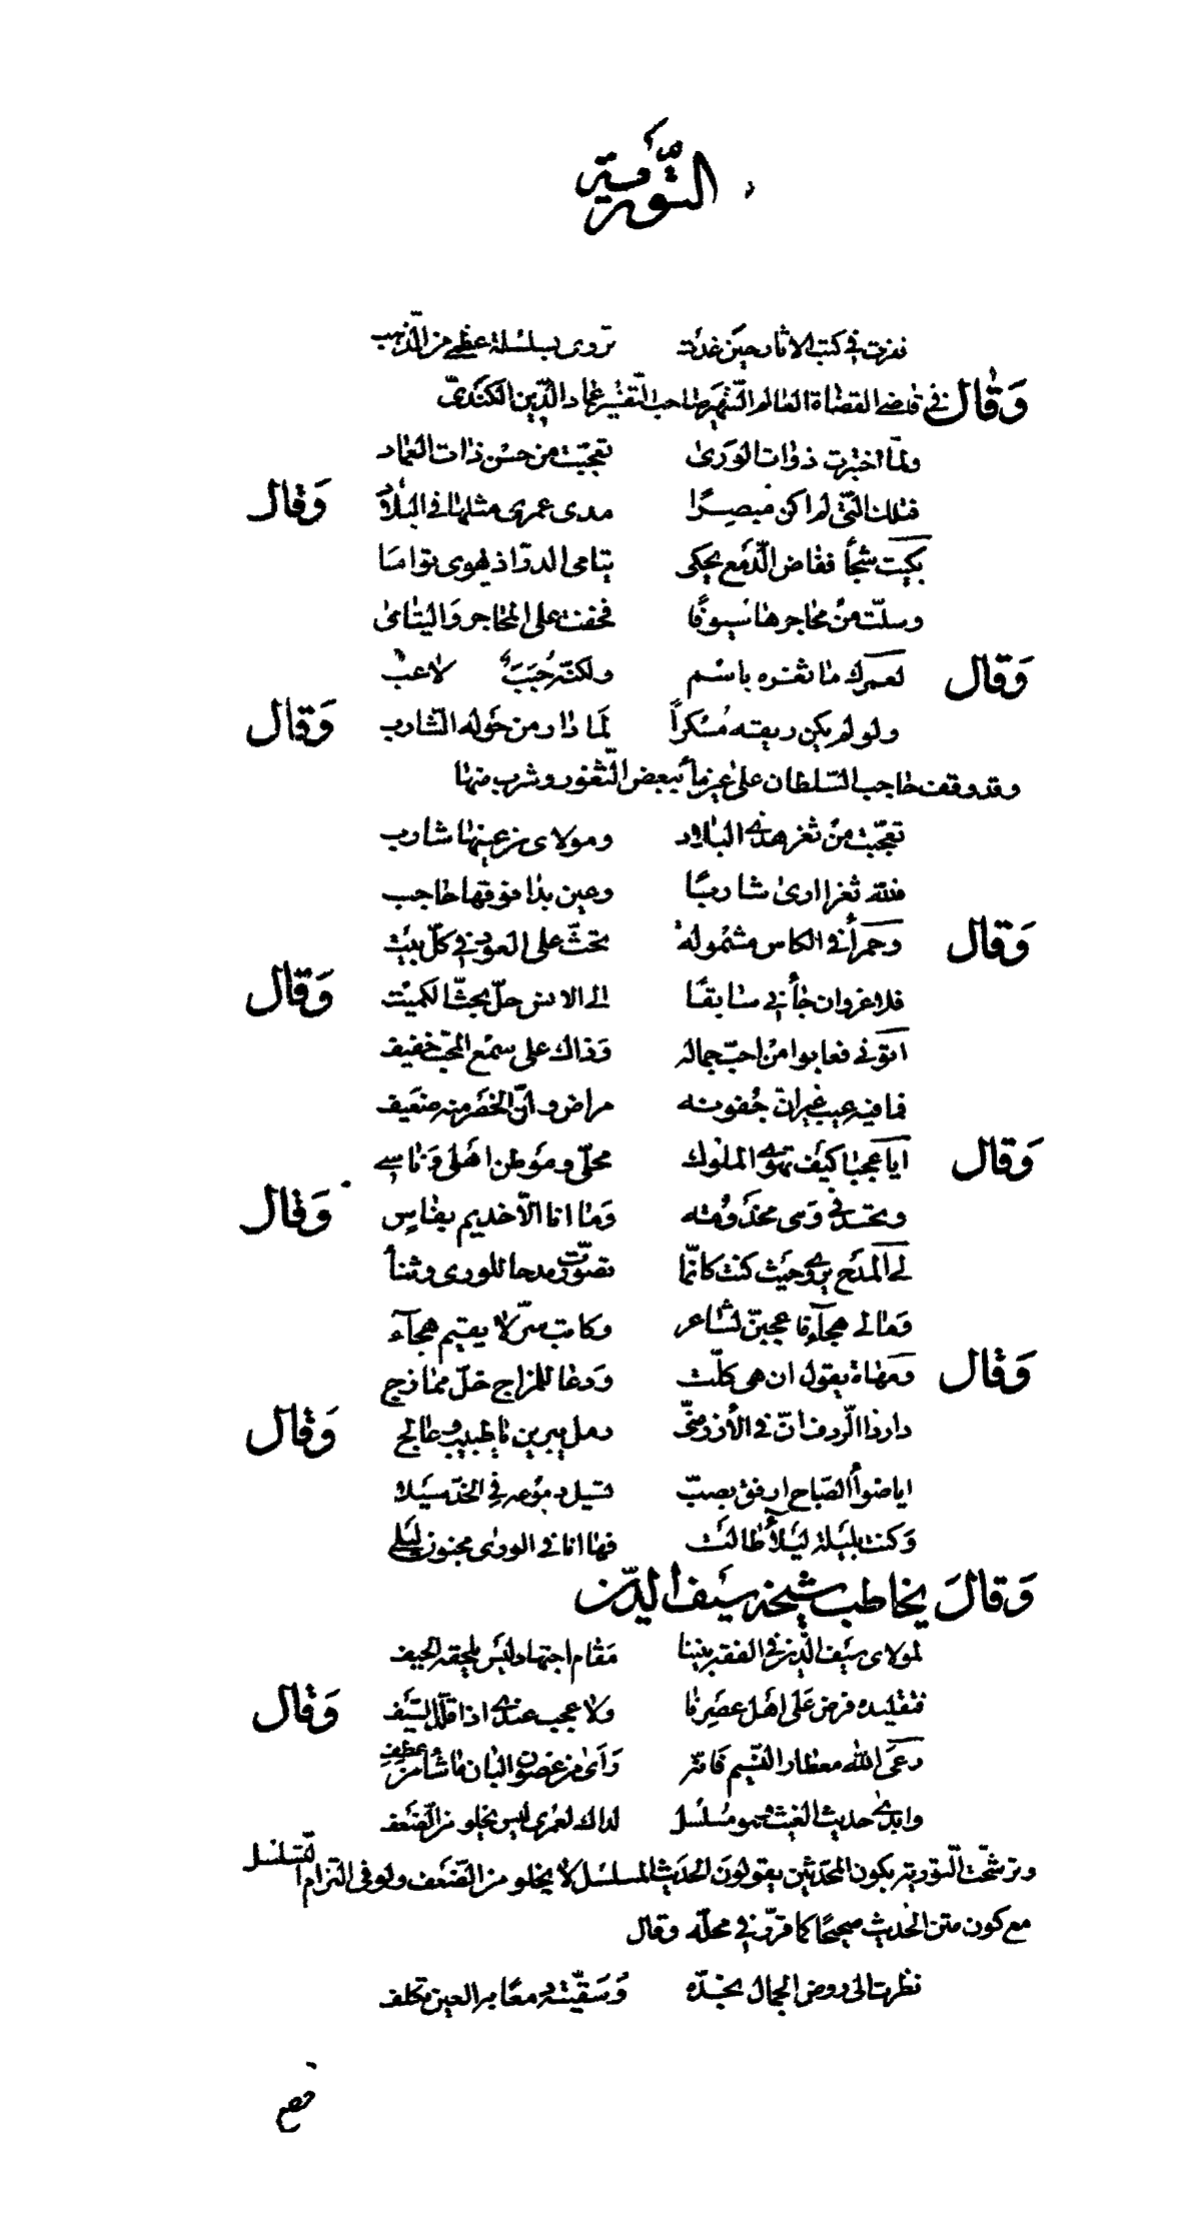 التورية
في كتب الاثار حين غدت تروى بسلسلة عظمى من الذهب
وقال في قاضي القضاة العالم الشهير صاحب التفسير عماد الدين الكندي
ولما اختبرت ذوات الورى تعجبت من حسن ذات العماد
فتلك التي لم اكن مبصرا مدى عمري مثلها في البلاد وقال
بكيت شجأ ففاض الدمع يحكي يتامى الدر اذ يهوى تواما
وسلت من محاجرها سيوفا فخفت على المحاجر واليتامى
وقال لعمرك ما ثغره باسم ولكنه حبب لاعب
ولو لم يكن ريقته مسكرا لما دار من حوله الشارب وقال
وقد وقف حاجب السلطان على عين مأ ببعض الثغور وشرب منها
تعجبت من ثغر هذي البلاد ومولاى من عينها شارب
فلله ثغرا ارى شاربا وعين بدا فوقها حاجب
وقال وحمرأ في الكاس مشمولة تحث على العود في كل بيت
فلا غرو ان جأني سابقا الى الانس حل يحث الكميت وقال
اتوني فعابوا من احب جماله وذاك على سمع المحب خفيف
فما فيه عيب غير ان جفونه مراض وان الخصر منه ضعيف
وقال ايا عجبا كيف تهوى الملوك محلي وموطن اهلي وناسي
وتحسدني وهى مخدومة وما انا الا خديم بفاس وقال
لي المدح يروى حيث كنت كانما تصورت مدحا للورى وثنأ
ومالي هجآء فاعجبن لشاعر وكاتب سر لا يقيم هجآء
وقال ومهاة يقول ان هي كلت ودعا للمزاج خل ممازج
دار ذا الردف ان في الأزر منحى رمل يبرين يا طبيب وعالج وقال
ايا ضوأ الصباح ارفق بصب تسيل دموعه في الخد سيلا
وكنت بليلة ليلأ طالت فها انا في الورى مجنون ليلى
وقال يخاطب شيخه سيف الدين
لمولاى سيف الدين في الفقه بيننا مقام اجتهاد ليس يلحقه الحيف
فتقليده فرض على اهل عصرنا ولا عجب عندي اذا قلد السيف وقال
رعى الله معطار النسيم فانه رأى من غصون البان ما شأ من عطف
وابدى حديث الغيث وهو مسلسل لذاك لعمري ليس يخلو من الضعف
وترشحت التورية بكون المحدثين يقولون الحديث المسلسل لأ يخلو من الضعف ولو في التزام التسلسل
مع كون متن الحديث صحيحا كما قرر في محله وقال
نظرت الى روض الجمال بخده وسقيته معا بر العين تكلف